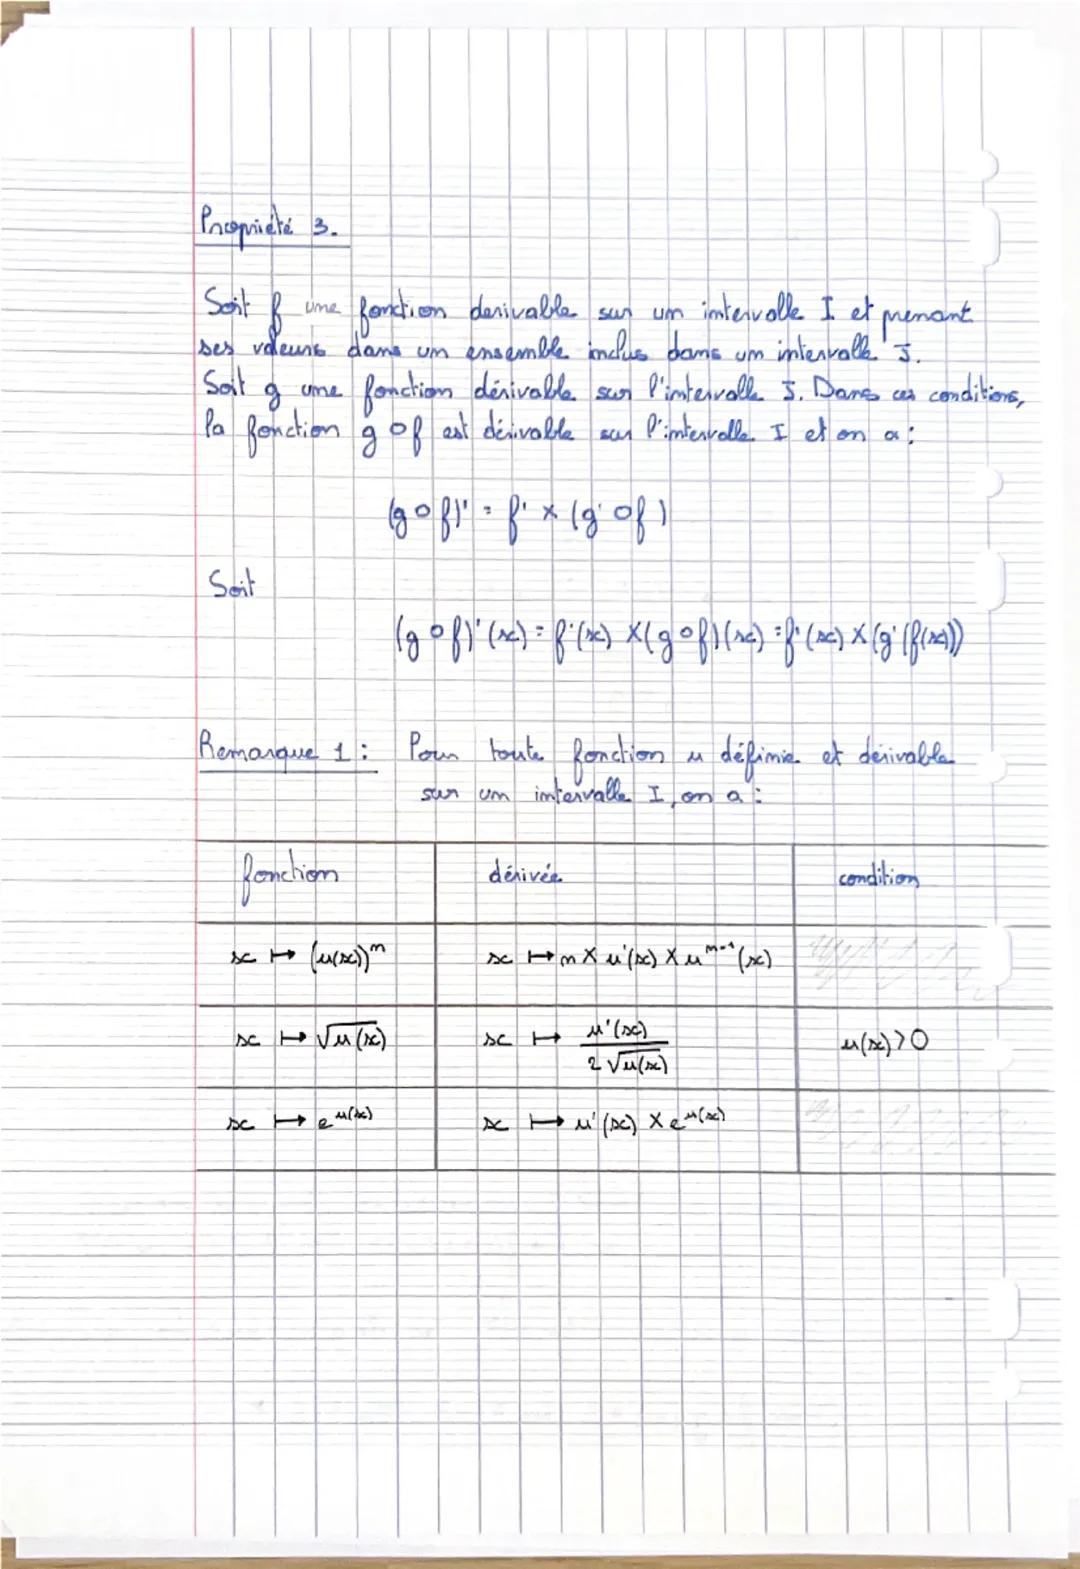 Propriété 3.
Soit f une fonction derivable sur un intervalle I et prenant
ses valeurs dans un ensemble inclus dans un intervalle J.
Soit g une fonction dérivable sur l'intervalle J. Dans ces conditions,
la fonction g o f est dérivable sur l'intervalle I et on a :
(g o f)' = f' × (g' o f)
Soit
(g o f)'(x) = f'(x) × (g o f)(x) = f'(x) × (g'(f(x)))
Remarque 1 : Pour toute fonction u définie et dérivable
sur un intervalle I, on a :
fonction dérivée condition
x ↦ (u(x))ⁿ x ↦ n × u'(x) × uⁿ⁻¹(x)
x ↦ √u(x) x ↦ u'(x) / 2√u(x) u(x) > 0
x ↦ e^u(x) x ↦ u'(x) × e^u(x)